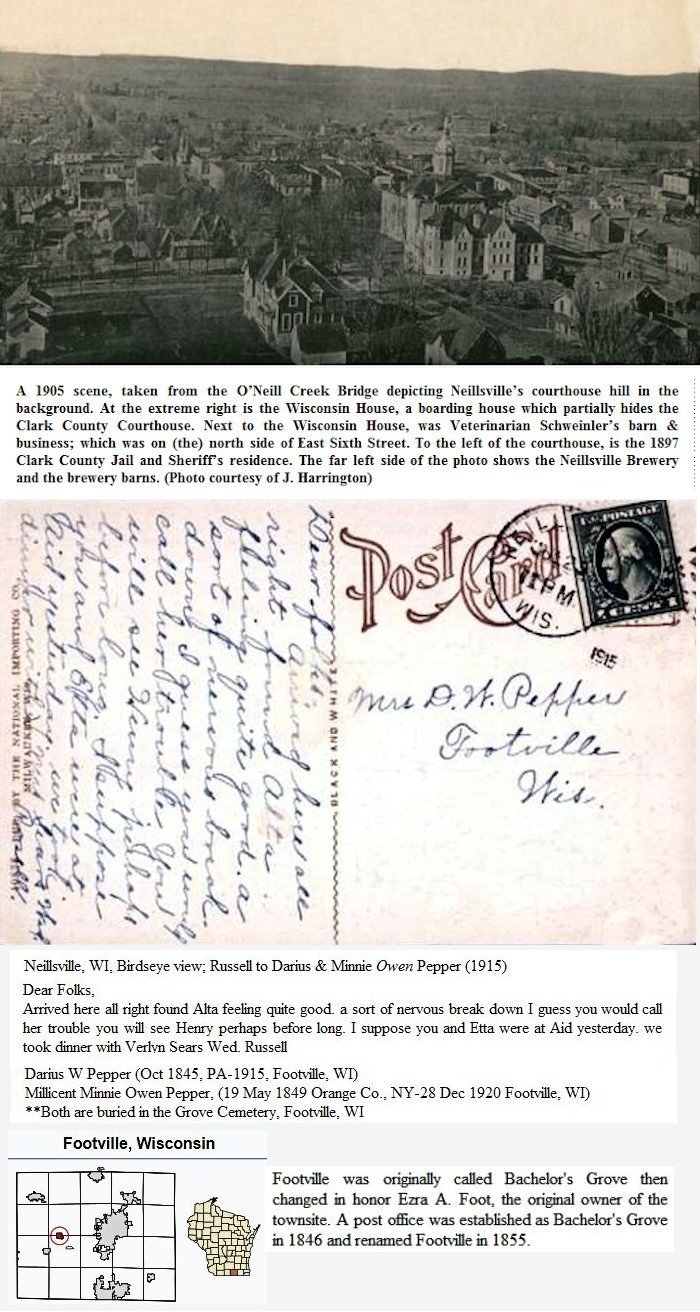 A 1905 scene, taken from the O'Neill Creek Bridge depicting Neillsville's courthouse hill in the
background. At the extreme right is the Wisconsin House, a boarding house which partially hides the
Clark County Courthouse. Next to the Wisconsin House, was Veterinarian Schweinler's barn &
business; which was on (the) north side of East Sixth Street. To the left of the courthouse, is the 1897
Clark County Jail and Sheriff's residence. The far left side of the photo shows the Neillsville Brewery
and the brewery barns. (Photo courtesy of J. Harrington)
Post Card
NEILL
11 PM
WIS.
1915
U.S. POSTAGE
2 CENTS 2
Mrs D. W. Pepper
Footville
Wis.
BLACK AND WHITE
Dear folks,
Arrived here all
right found Alta
feeling quite good. a
sort of nervous break
down I guess you would
call her trouble you
will see Henry perhaps
before long. I suppose
you and Etta were at
Aid yesterday. we took
dinner with Verlyn Sears Wed.
Russell.
BY THE NATIONAL IMPORTING CO.
MILWAUKEE
Neillsville, WI, Birdseye view; Russell to Darius & Minnie Owen Pepper (1915)
Dear Folks,
Arrived here all right found Alta feeling quite good. a sort of nervous break down I guess you would call
her trouble you will see Henry perhaps before long. I suppose you and Etta were at Aid yesterday. we
took dinner with Verlyn Sears Wed. Russell
Darius W Pepper (Oct 1845, PA-1915, Footville, WI)
Millicent Minnie Owen Pepper, (19 May 1849 Orange Co., NY-28 Dec 1920 Footville, WI)
**Both are buried in the Grove Cemetery, Footville, WI
Footville, Wisconsin
Footville was originally called Bachelor's Grove then
changed in honor Ezra A. Foot, the original owner of the
townsite. A post office was established as Bachelor's Grove
in 1846 and renamed Footville in 1855.